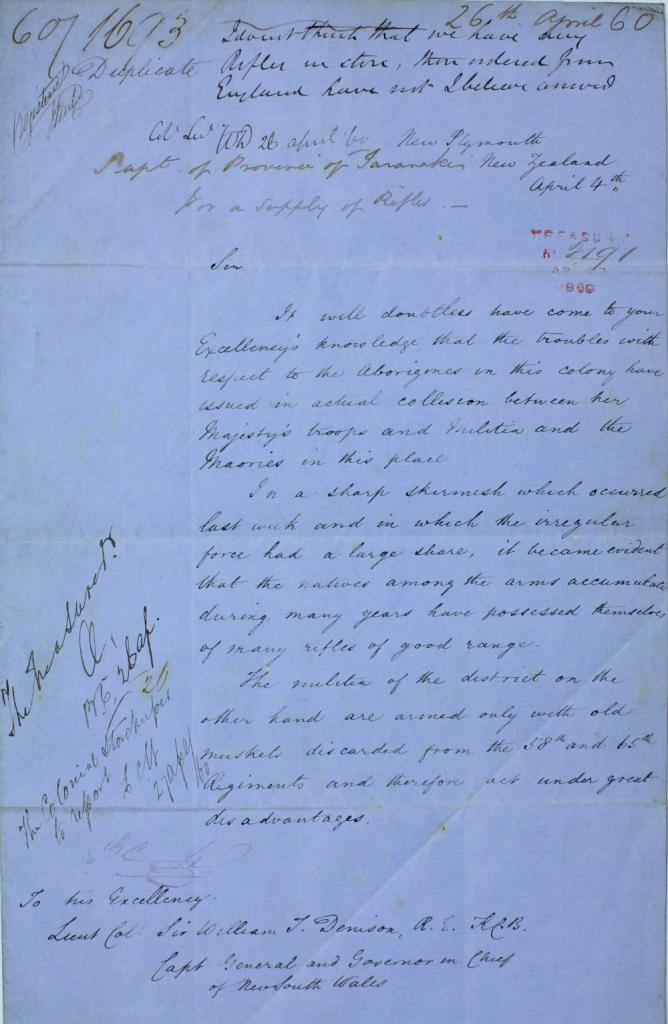 60/1693
26th April 60
I doubt think that we have any
Duplicate
Rifles in store, those ordered from
England have not I believe arrived
Registered
Col Sec
26 april 60
New Plymouth
Supt. of Province of Taranaki
New Zealand
April 4th
For a supply of Rifles. —
TREASURY
2191
1860
Sir
It will doubtless have come to your
Excellency's knowledge that the troubles with
respect to the Aborigines in this colony have
issued in actual collision between her
Majesty's troops and Militia and the
Maories in this place
In a sharp skirmish which occurred
last week and in which the irregular
force had a large share, it became evident
that the natives among the arms accumulate
during many years have possessed themselves
of many rifles of good range.
The militia of the district on the
other hand are armed only with old
muskets discarded from the 58th and 65th
Regiments and therefore act under great
disadvantages.
The Treasurer
26 ap.
The Colonial Storekeeper
to report
27 april
60
To his Excellency
Lieut Col. Sir William T. Denison, R. E. K.C.B.
Capt General and Governor in Chief
of New South Wales